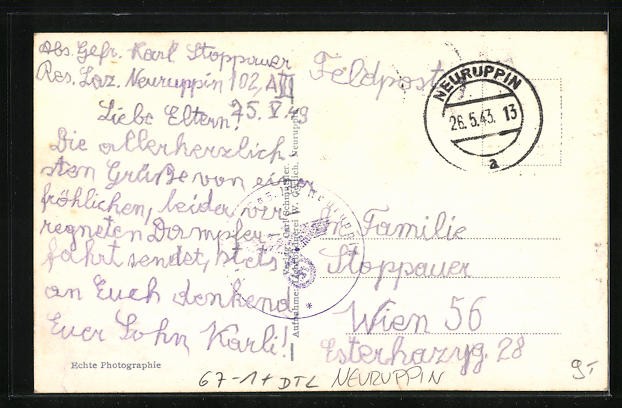 Abs. Gefr. Karl Stoppauer
Res. Laz. Neuruppin 102, A III
25. V. 43
Liebe Eltern!
Die allerherzlich
sten Grüße von einer
fröhlichen, leider ver
regneten Dampfer-
fahrt sendet, stets
an Euch denkend
Euer Sohn Karli!
Echte Photographie
Feldpost
NEURUPPIN
26.5.43. 13
a
An Familie
Stoppauer
Wien 56
Esterhazyg. 28
67-1+ DTL NEURUPPIN
9,-